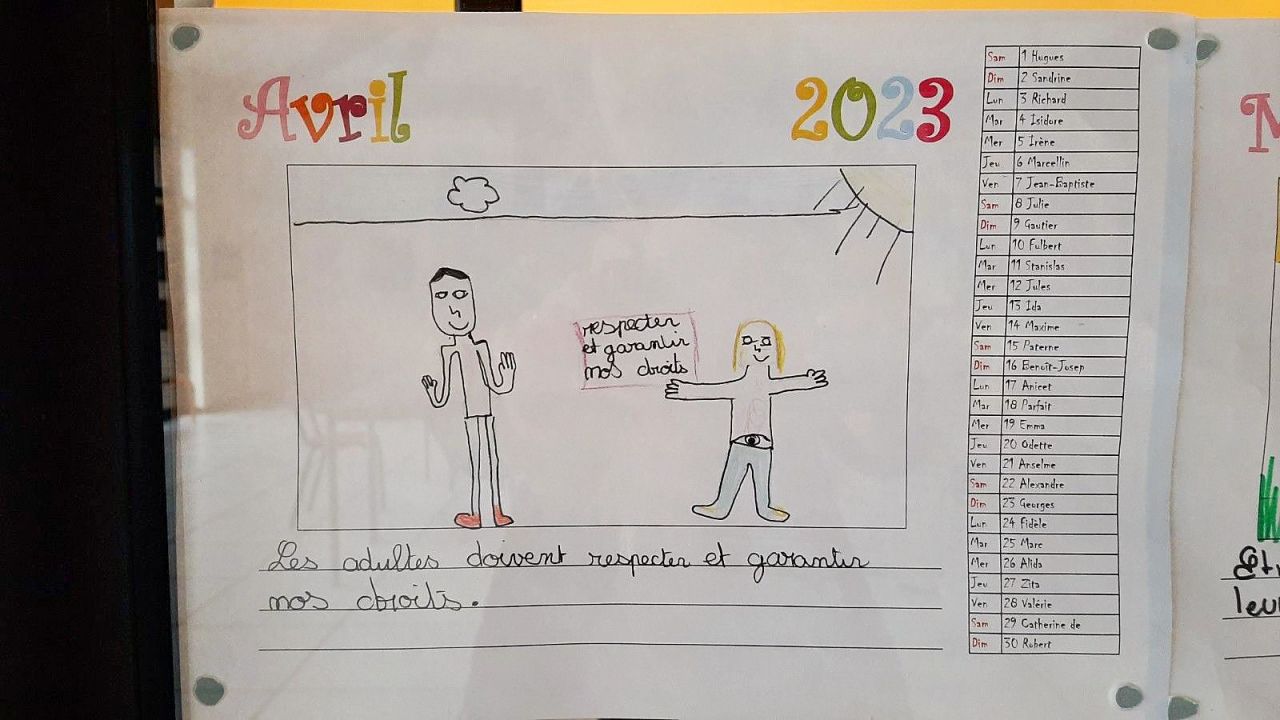 Avril 2023
respecter
et garantir
nos droits
Les adultes doivent respecter et garantir
nos droits.
Sam 1 Hugues
Dim 2 Sandrine
Lun 3 Richard
Mar 4 Isidore
Mer 5 Irène
Jeu 6 Marcellin
Ven 7 Jean-Baptiste
Sam 8 Julie
Dim 9 Gautier
Lun 10 Fulbert
Mar 11 Stanislas
Mer 12 Jules
Jeu 13 Ida
Ven 14 Maxime
Sam 15 Paterne
Dim 16 Benoît-Josep
Lun 17 Anicet
Mar 18 Parfait
Mer 19 Emma
Jeu 20 Odette
Ven 21 Anselme
Sam 22 Alexandre
Dim 23 Georges
Lun 24 Fidèle
Mar 25 Marc
Mer 26 Alida
Jeu 27 Zita
Ven 28 Valérie
Sam 29 Catherine de
Dim 30 Robert